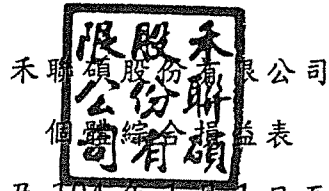 禾聯碩股份有限公司
個體綜合損益表
禾聯碩
股份有
限公司